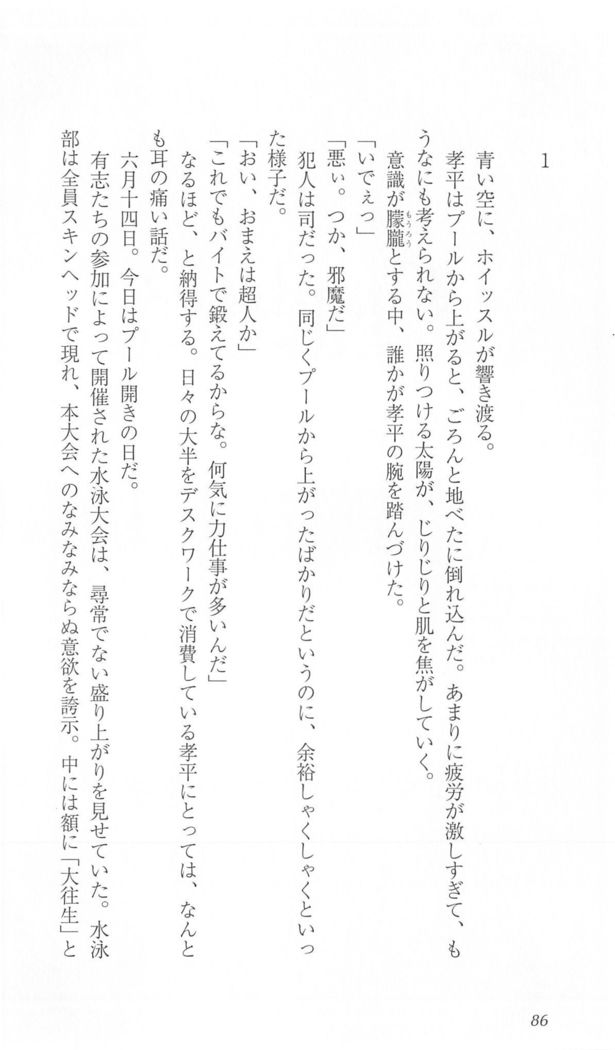 1
青い空に、ホイッスルが響き渡る。
孝平はプールから上がると、ごろんと地べたに倒れ込んだ。あまりに疲労が激しすぎて、も
うなにも考えられない。照りつける太陽が、じりじりと肌を焦がしていく。
意識が朦朧とする中、誰かが孝平の腕を踏んづけた。
もうろう
「いでぇっ」
「悪ぃ。つか、邪魔だ」
犯人は司だった。同じくプールから上がったばかりだというのに、余裕しゃくしゃくといっ
た様子だ。
「おい、おまえは超人か」
「これでもバイトで鍛えてるからな。何気に力仕事が多いんだ」
なるほど、と納得する。日々の大半をデスクワークで消費している孝平にとっては、なんと
も耳の痛い話だ。
六月十四日。今日はプール開きの日だ。
有志たちの参加によって開催された水泳大会は、尋常でない盛り上がりを見せていた。水泳
部は全員スキンヘッドで現れ、本大会へのなみなみならぬ意欲を誇示。中には額に「大往生」と
86